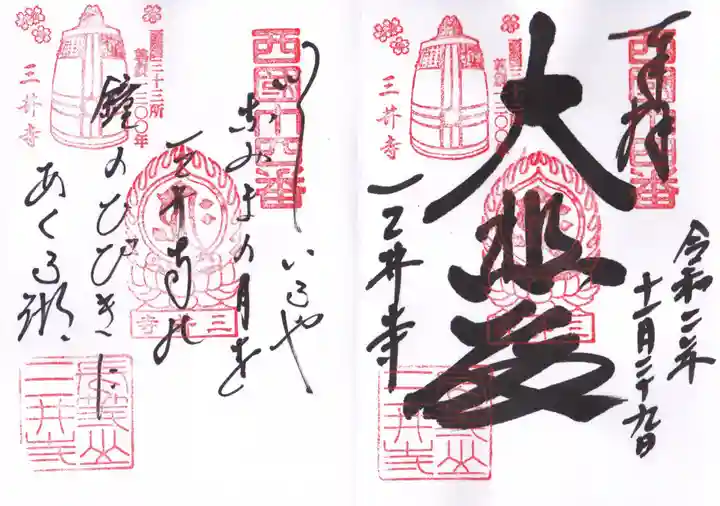 奉拝
西國十四番
大悲殿
三井寺
令和二年
十一月二十九日
三十三所
草創一三〇〇年
三井寺
三井寺
西國十四番
いでいるや
なみまの月を
三井寺の
鐘のひびきに
あくる湖
三十三所
草創一三〇〇年
三井寺
三井寺